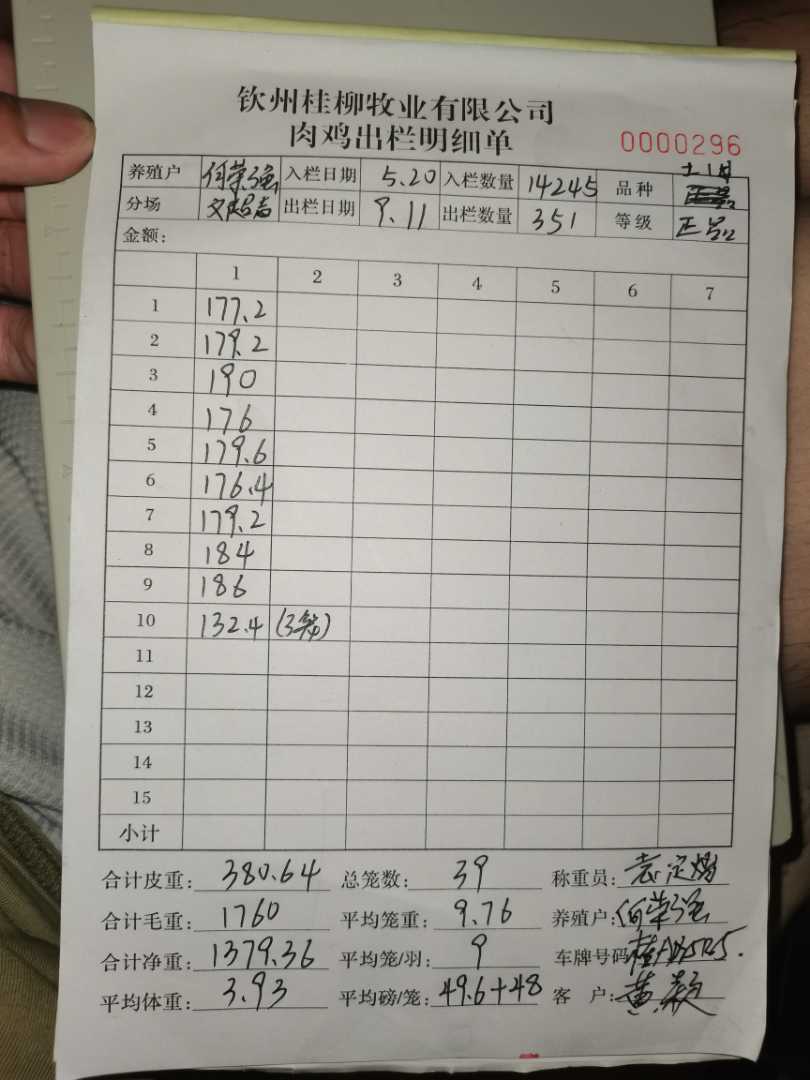 钦州桂柳牧业有限公司
肉鸡出栏明细单
0000296
养殖户 何荣强 入栏日期 5.20 入栏数量 14245 品种 土1
分场 出栏日期 9.11 出栏数量 351 等级 正品
金额：
1 2 3 4 5 6 7
1 177.2
2 179.2
3 190
4 176
5 179.6
6 176.4
7 179.2
8 184
9 186
10 132.4 (3笼)
11
12
13
14
15
小计
合计皮重：380.64 总笼数：39 称重员：
合计毛重：1760 平均笼重：9.76 养殖户：何荣强
合计净重：1379.36 平均笼/羽：9 车牌号码
平均体重：3.93 平均磅/笼：49.6+48 客 户：黄